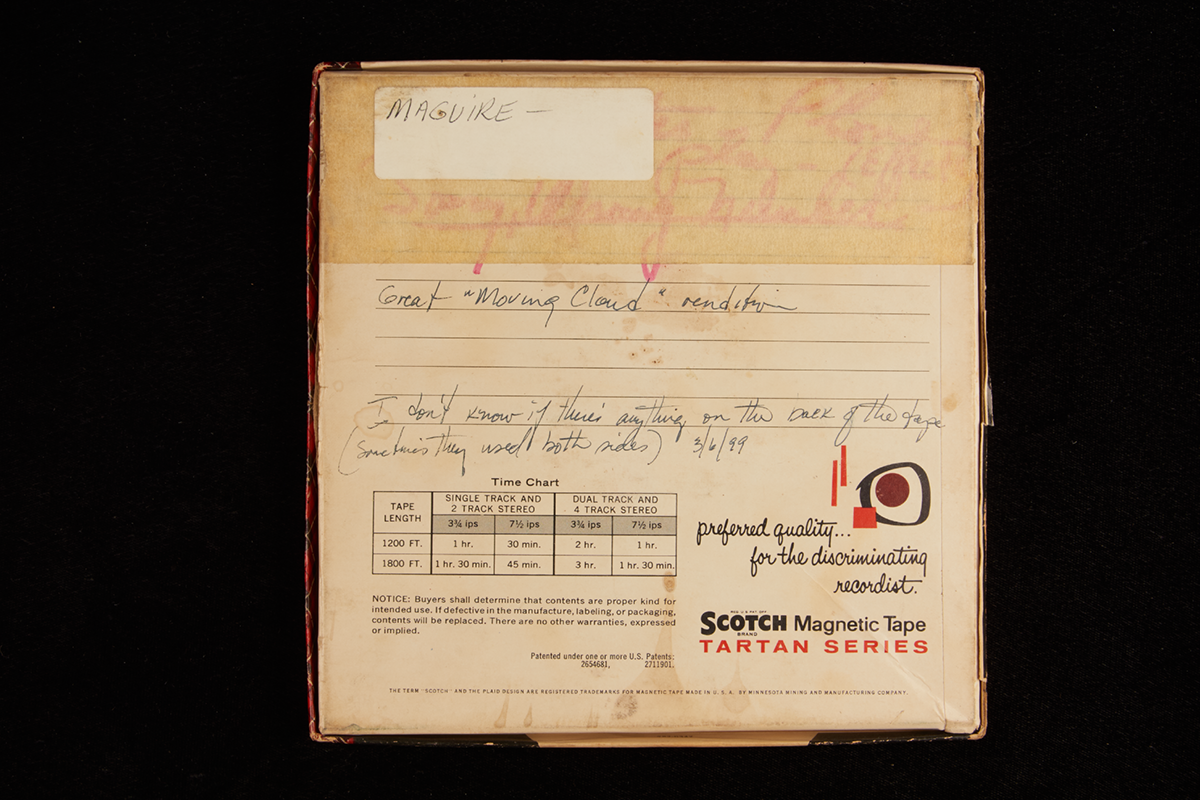 MAGUIRE —
Great "Moving Cloud" rendition
I don't know if there's anything on the back of the tape
(sometimes they used both sides) 3/6/99
Time Chart
TAPE LENGTH SINGLE TRACK AND 2 TRACK STEREO DUAL TRACK AND 4 TRACK STEREO
3¾ ips 7½ ips 3¾ ips 7½ ips
1200 FT. 1 hr. 30 min. 2 hr. 1 hr.
1800 FT. 1 hr. 30 min. 45 min. 3 hr. 1 hr. 30 min.
preferred quality...
for the discriminating
recordist.
NOTICE: Buyers shall determine that contents are proper kind for
intended use. If defective in the manufacture, labeling, or packaging,
contents will be replaced. There are no other warranties, expressed
or implied.
REG. U.S. PAT. OFF.
SCOTCH Magnetic Tape
BRAND
TARTAN SERIES
Patented under one or more U.S. Patents:
2654681, 2711901.
THE TERM "SCOTCH" AND THE PLAID DESIGN ARE REGISTERED TRADEMARKS FOR MAGNETIC TAPE MADE IN U. S. A. BY MINNESOTA MINING AND MANUFACTURING COMPANY.